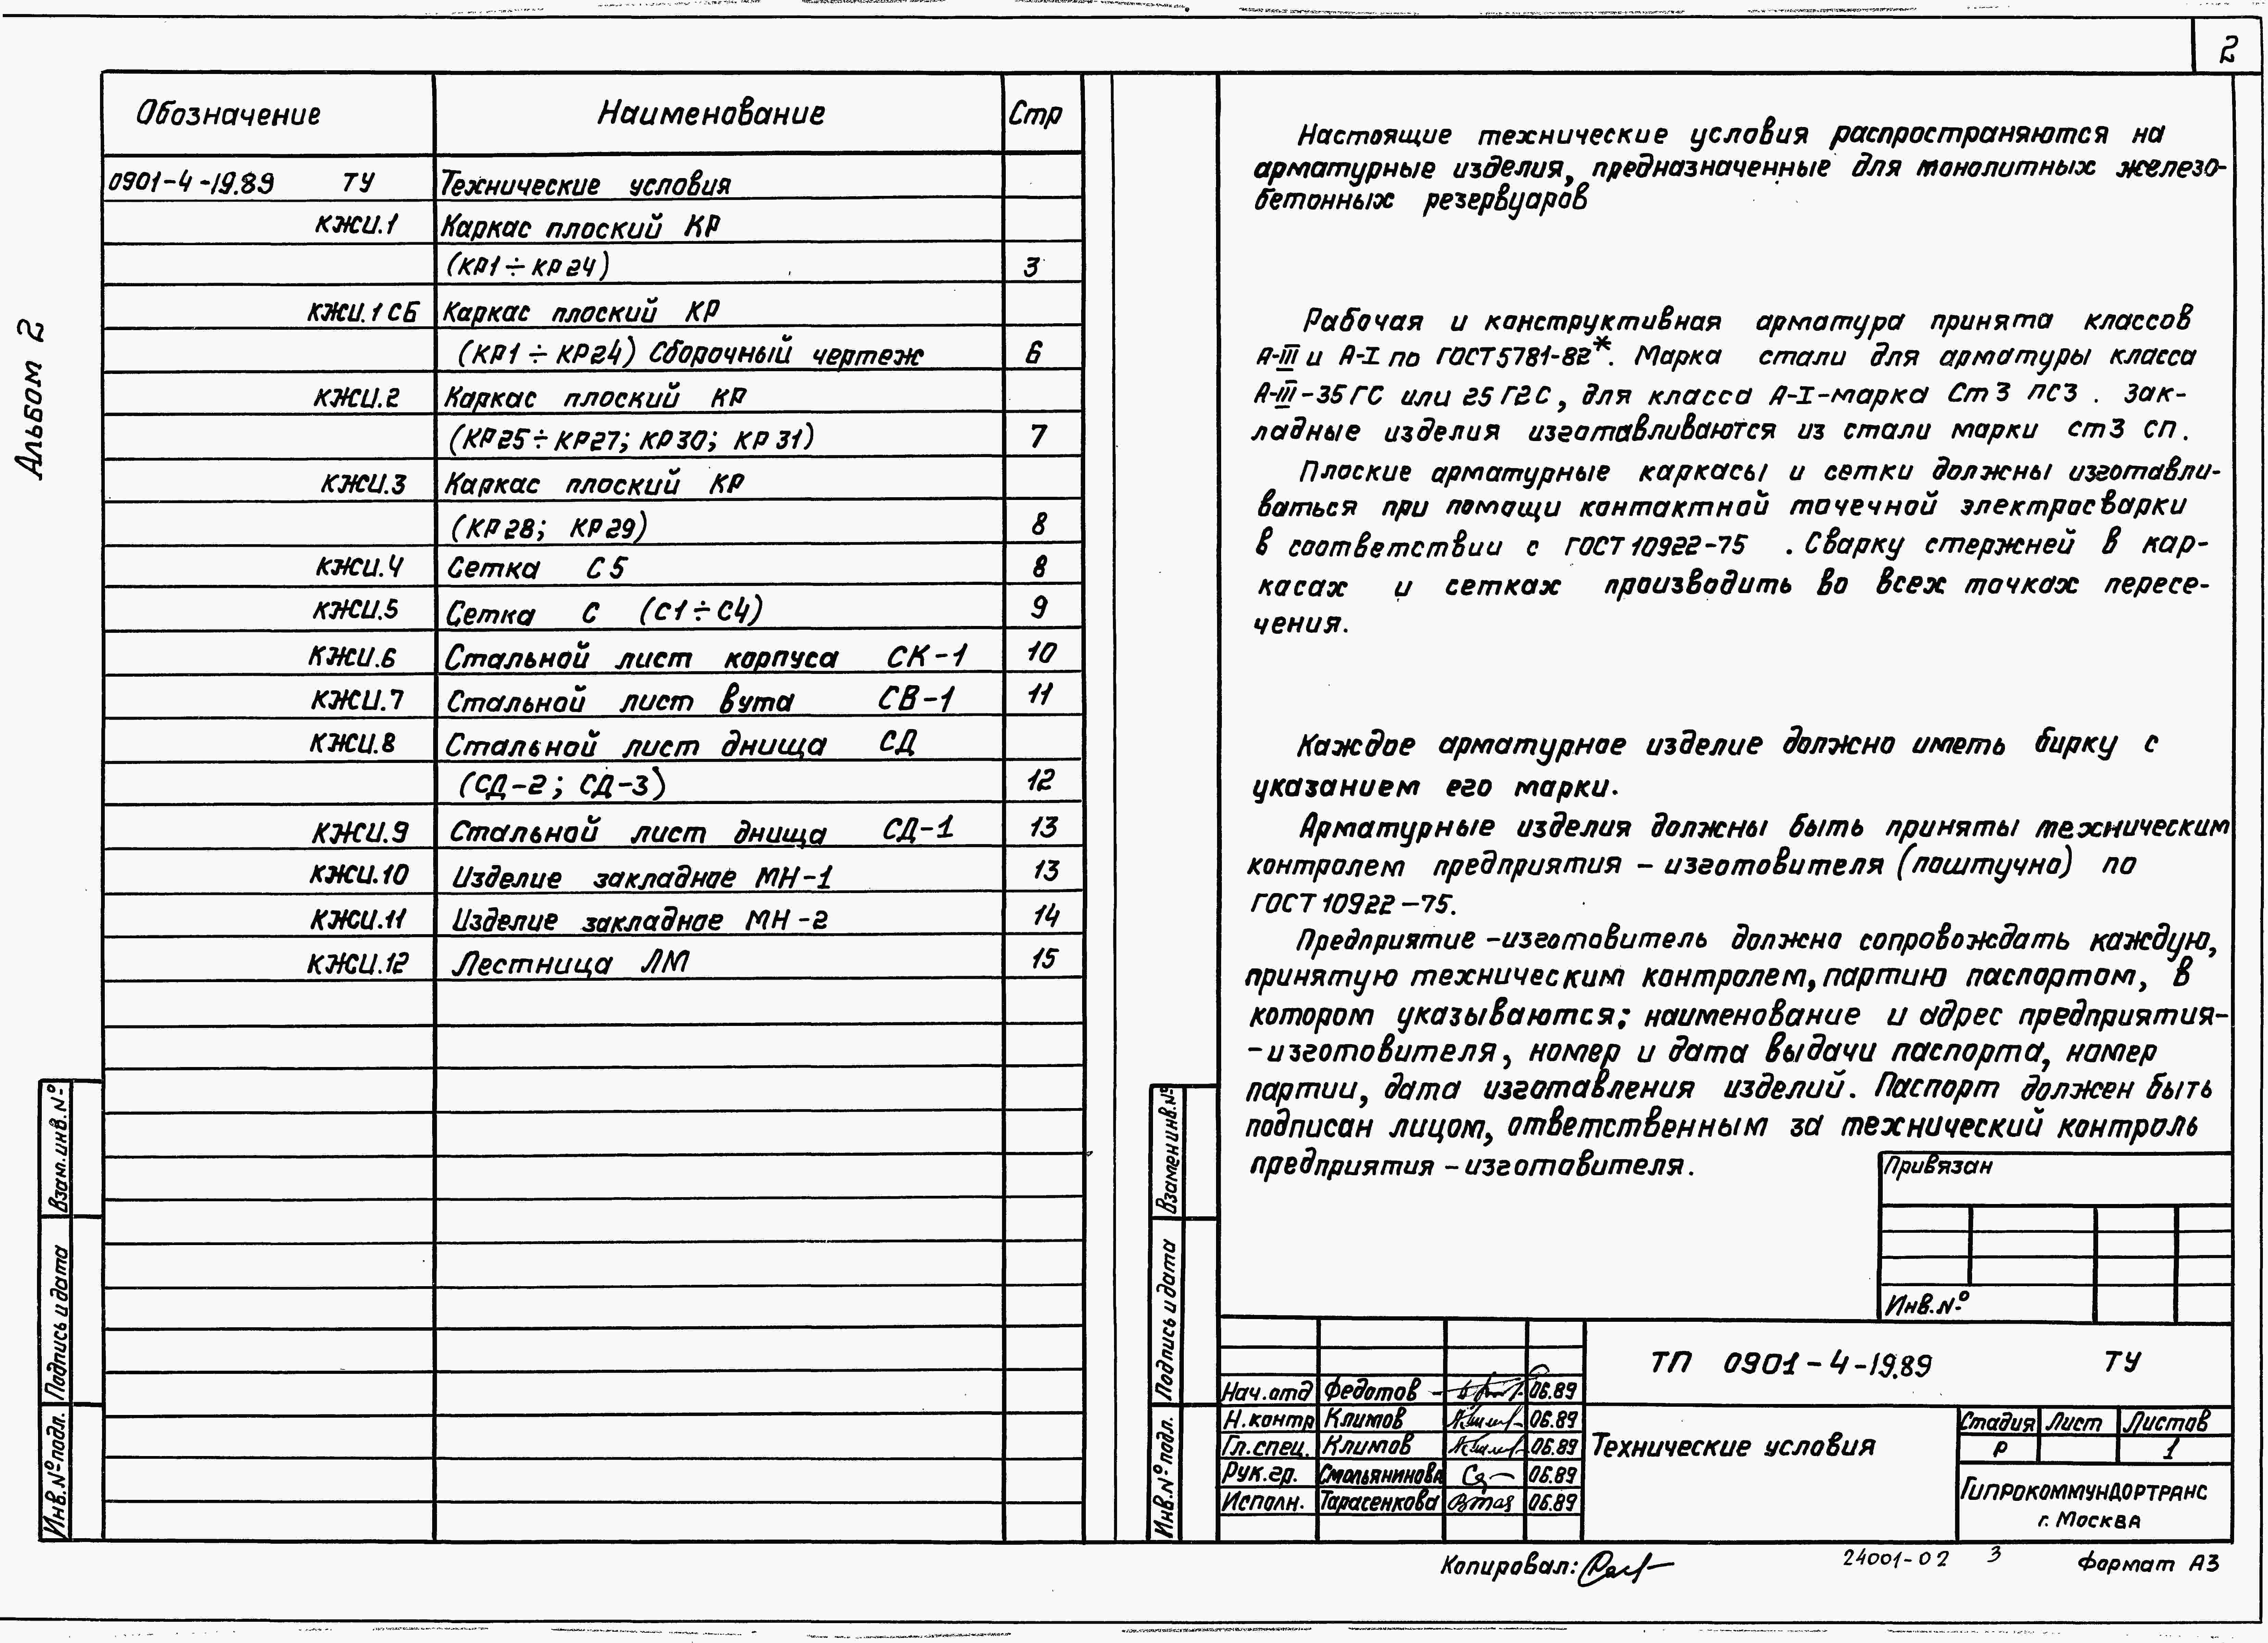 2
Альбом 2
Обозначение Наименование Стр
0901-4-19.89 ТУ Технические условия
КЖИ.1 Каркас плоский КР
(КР1÷КР24) 3
КЖИ.1 СБ Каркас плоский КР
(КР1÷КР24) Сборочный чертеж 6
КЖИ.2 Каркас плоский КР
(КР25÷КР27; КР30; КР31) 7
КЖИ.3 Каркас плоский КР
(КР28; КР29) 8
КЖИ.4 Сетка С5 8
КЖИ.5 Сетка С (С1÷С4) 9
КЖИ.6 Стальной лист корпуса СК-1 10
КЖИ.7 Стальной лист вута СВ-1 11
КЖИ.8 Стальной лист днища СД
(СД-2; СД-3) 12
КЖИ.9 Стальной лист днища СД-1 13
КЖИ.10 Изделие закладное МН-1 13
КЖИ.11 Изделие закладное МН-2 14
КЖИ.12 Лестница ЛМ 15
Взам.инв.№
Подпись и дата
Инв.№подл.
Настоящие технические условия распространяются на
арматурные изделия, предназначенные для монолитных железо-
бетонных резервуаров
Рабочая и конструктивная арматура принята классов
А-III и А-I по ГОСТ 5781-82*. Марка стали для арматуры класса
А-III-35ГС или 25Г2С, для класса А-I-марка Ст3 пс3. Зак-
ладные изделия изготавливаются из стали марки ст3 сп.
Плоские арматурные каркасы и сетки должны изготавли-
ваться при помощи контактной точечной электросварки
в соответствии с ГОСТ 10922-75 . Сварку стержней в кар-
касах и сетках производить во всех точках пересе-
чения.
Каждое арматурное изделие должно иметь бирку с
указанием его марки.
Арматурные изделия должны быть приняты техническим
контролем предприятия - изготовителя (поштучно) по
ГОСТ 10922-75.
Предприятие -изготовитель должно сопровождать каждую,
принятую техническим контролем, партию паспортом, в
котором указываются; наименование и адрес предприятия-
-изготовителя, номер и дата выдачи паспорта, номер
партии, дата изготавления изделий. Паспорт должен быть
подписан лицом, ответственным за технический контроль
предприятия - изготовителя.
Взамен инв.№
Подпись и дата
Инв.№ подл.
Привязан
Инв.№
ТП 0901-4-19.89 ТУ
Нач.отд Федотов 06.89
Н.контр Климов 06.89
Гл.спец. Климов 06.89
Рук.гр. Смольянинова 06.89
Исполн. Тарасенкова 06.89
Технические условия
Стадия Лист Листов
Р 1
Гипрокоммундортранс
г. Москва
Копировал:
24001-02 3
Формат А3